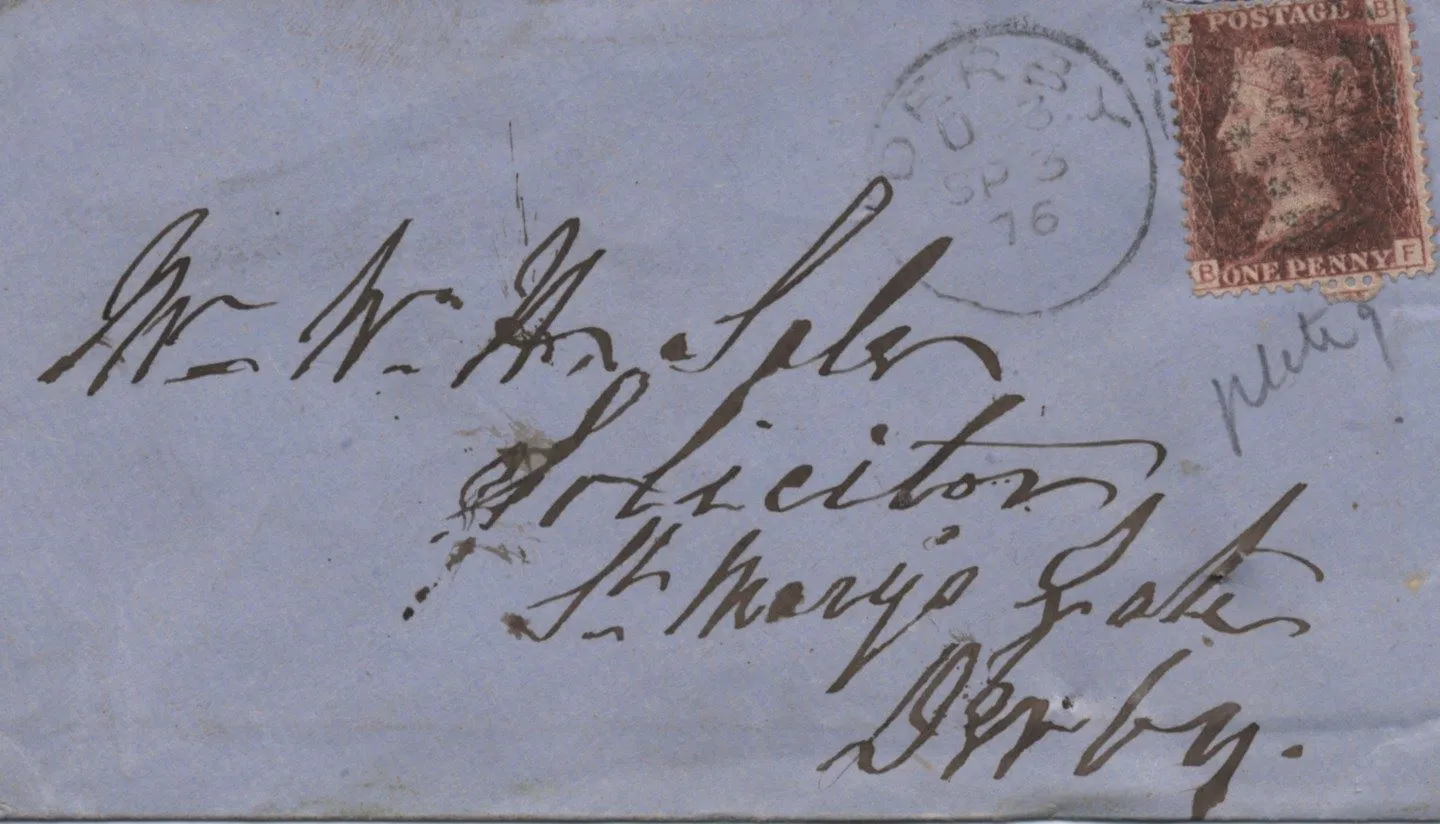 POSTAGE B
DERBY
U 3
SP 3
76
B ONE PENNY F
Mr Wm H. Sale
Solicitor
St Mary's Gate
Derby.
plate 9